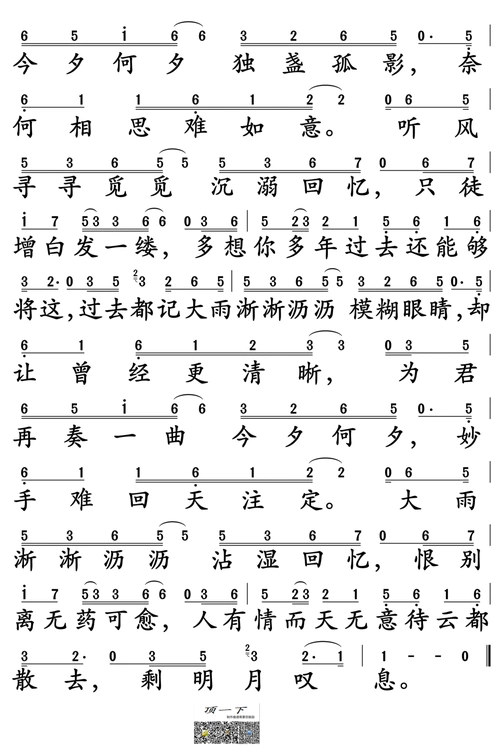 6 5 i 6 6 3 2 6 5 0· 5
今夕何夕 独盏孤影，奈
6 1 1 6 1 2 2 0 6 5
何相思难如意。 听风
5 3 6 5 5 5 3 6 7 0 6 7
寻寻觅觅 沉溺回忆，只徒
i 7 5 3 3 6 6 0 3 6 5 2 3 2 1 5 6 1 6
增白发一缕，多想你多年过去还能够
3 2· 0 3 5 2 3 2 6 5 5 3 6 5 5 3 6 2 6 5 0· 5
将这，过去都记大雨淅淅沥沥 模糊眼睛，却
6 1 6 1 2 3 3 0 3 5
让曾经更清晰， 为君
6 5 i 6 6 3 2 6 5 0· 5
再奏一曲 今夕何夕，妙
6 1 1 6 1 2 2 0 6 5
手难回天注定。 大雨
5 3 6 5 5 5 3 6 7 0 6 7
淅淅沥沥 沾湿回忆，恨别
i 7 5 3 3 6 6 0 3 6 5 2 3 2 1 5 6 1 6
离无药可愈，人有情而天无意待云都
3 2· 0 3 5 2 3 2· 1 1 - - 0
散去，剩明月叹 息。
顶一下